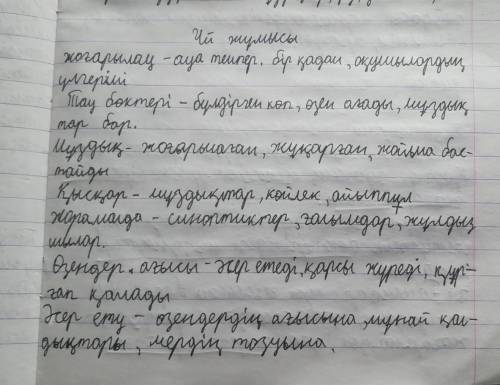 Үй жұмысы
жоғарылау - ауа темпер. бір қадам, оқушылардың
үлгерімі
Тау бөктері - бүлдірген көп, өзен ағады, мұздық
тар бар.
Мұздық - жоғарылаған, жұқарған, жайыла бас-
тайды
Қысқар - мұздықтар, көйлек, айыппұл
жорамалда - синоптиктер, ғалымдар, жұлдыз
шылар.
Өзендер. ағысы - әсер етеді, қарсы жүреді, құр-
ғап қалады
Әсер ету - өзендердің ағысына, мұнай қал-
дықтары, жердің тозуына.